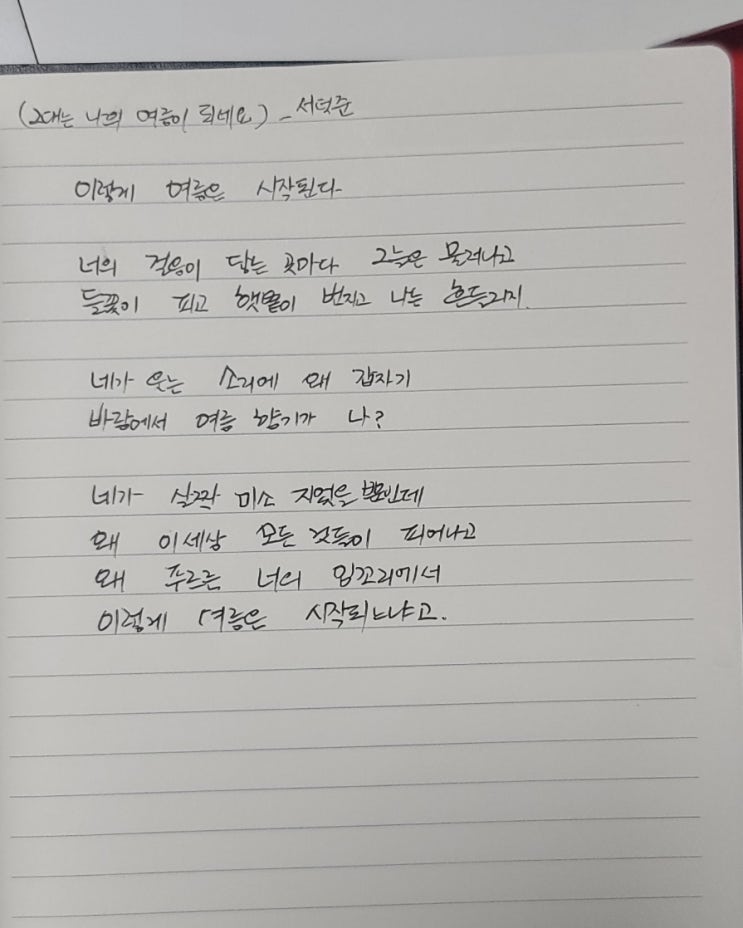 (그대는 나의 여름이 되네요) - 서덕준
이렇게 여름은 시작된다
너의 걸음이 닿는 곳마다 그늘은 물러나고
들꽃이 피고 햇볕이 번지고 나는 흔들리지.
네가 웃는 소리에 왜 갑자기
바람에서 여름 향기가 나?
네가 살짝 미소 지었을 뿐인데
왜 이세상 모든 것들이 피어나고
왜 푸르른 너의 입꼬리에서
이렇게 여름은 시작되느냐고.